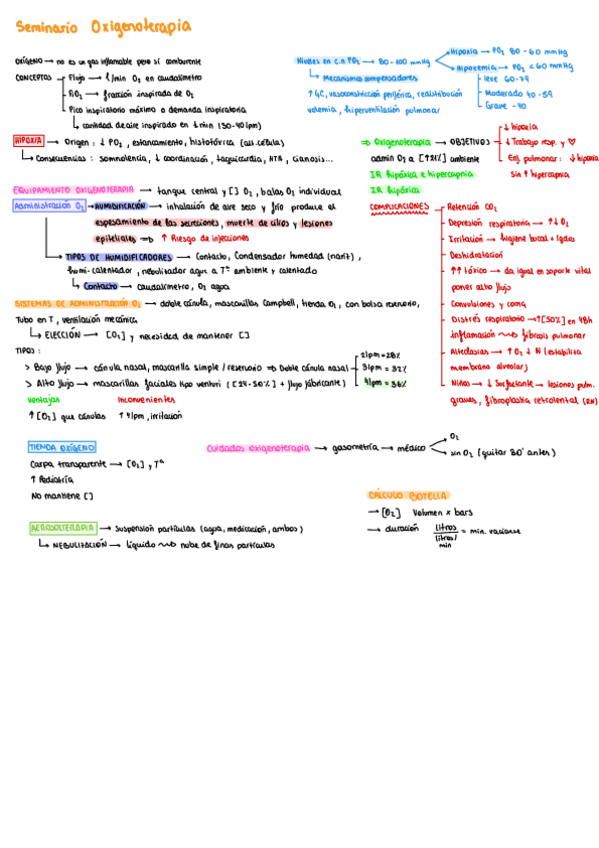 Seminario Oxigenoterapia
OXÍGENO → no es un gas inflamable pero sí comburente
CONCEPTOS
Flujo → l/min O₂ en caudalímetro
FiO₂ → fracción inspirada de O₂
Pico inspiratorio máximo o demanda inspiratoria
↳ cantidad de aire inspirado en 1 min (30-40 lpm)
Niveles en c.n PO₂ → 80-100 mmHg
Hipoxia → PO₂ 80-60 mmHg
Hipoxemia → PO₂ < 60 mmHg
leve 60-79
Moderado 40-59
Grave -40
↳ Mecanismos compensadores
↑ GC, vasoconstricción periférica, redistribución
volemia, hiperventilación pulmonar
HIPOXIA → Origen: ↓ PO₂, estancamiento, histotóxica (alt. célula)
↳ Consecuencias: somnolencia, ↓ coordinación, taquicardia, HTA, cianosis...
⇒ Oxigenoterapia → OBJETIVOS
↓ hipoxia
↓ Trabajo resp. y ♡
Enf. pulmonar: ↓ hipoxia
sin ↑ hipercapnia
admin O₂ a [↑21%] ambiente
IR hipóxica e hipercapnia
IR hipóxica
EQUIPAMIENTO OXIGENOTERAPIA → tanque central y [] O₂, balas O₂ individual
Administración O₂ → HUMIDIFICACIÓN → inhalación de aire seco y frío produce el
espesamiento de las secreciones, muerte de cilios y lesiones
epiteliales ⇒ ↑ Riesgo de infecciones
↳ TIPOS DE HUMIDIFICADORES → Contacto, Condensador humedad (nariz),
humi-calentador, nebulizador agua a Tª ambiente y calentado
↳ Contacto → caudalímetro, O₂ agua
COMPLICACIONES
Retención CO₂
Depresión respiratoria → ↑↓ O₂
Irritación → higiene bucal + lgdas
Deshidratación
↑↑ tóxico → da igual en soporte vital
poner alto flujo
Convulsiones y coma
Distrés respiratorio → ↑[50%] en 48h
inflamación ⇝ fibrosis pulmonar
Atelectasias → ↑ O₂ ↓ N (estabiliza
membrana alveolar)
Niños → ↓ Surfactante → lesiones pulm.
graves, fibroplastia retrolental (RN)
SISTEMAS DE ADMINISTRACIÓN O₂ → doble cánula, mascarillas Campbell, tienda O₂, con bolsa reservorio,
Tubo en T, ventilación mecánica
↳ ELECCIÓN → [O₂] y necesidad de mantener []
TIPOS:
> Bajo flujo → cánula nasal, mascarilla simple / reservorio ⇒ Doble cánula nasal
2lpm = 28%
3lpm = 32%
4lpm = 36%
> Alto flujo → mascarillas faciales tipo venturi ([24-50%] + flujo fabricante)
Ventajas Inconvenientes
↑ [O₂] que cánulas ↑ 4lpm, irritación
TIENDA OXÍGENO
Carpa transparente → [O₂] y Tª
↑ Pediatría
No mantiene []
Cuidados oxigenoterapia → gasometría → médico
O₂
sin O₂ (quitar 30' antes)
CÁLCULO BOTELLA
→ [O₂] Volumen x bars
→ duración litros / litros/min = min. raciones
AEROSOLTERAPIA → Suspensión partículas (agua, medicación, ambos)
↳ NEBULIZACIÓN → líquido ⇝ nube de finas partículas